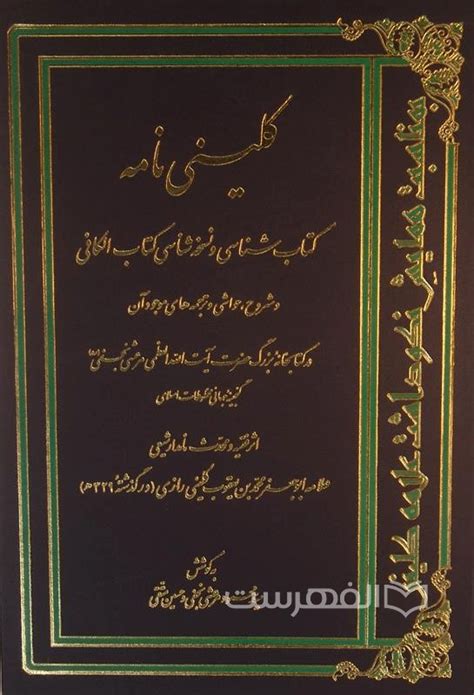 کلینی نامه
کتاب شناسی و نسخه شناسی کتاب الکافی
و شروح، حواشی و ترجمه های موجود آن
در کتابخانه بزرگ حضرت آیت الله العظمی مرعشی نجفی
گنجینه جهانی مخطوطات اسلامی
اثر فقیه و محدث نامدار شیعی
علامه ابوجعفر محمد بن یعقوب کلینی رازی (درگذشتهٔ ۳۲۹ ه)
به کوشش
مرعشی نجفی و حسین متقی
بمناسبت همایش نکوداشت علامه کلینی
الفهرست